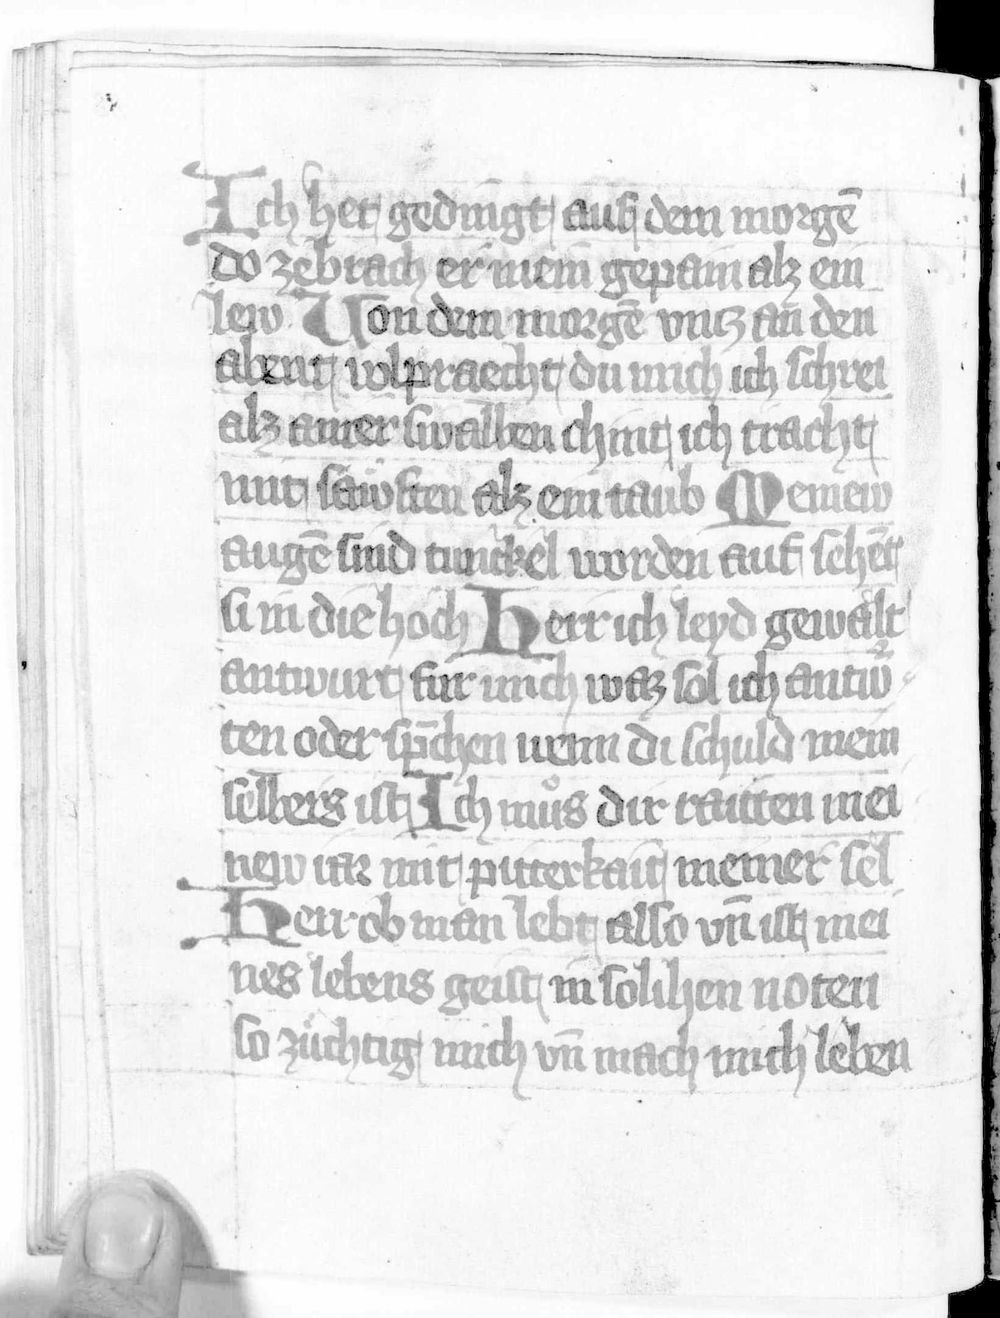 Ich het gedingt auf dem morgē
do zebrach er mein gepain alz ein
lew Von dem morgē vntz an den
abent volpraecht du mich ich schrei
alz ainer swalben chint ich tracht
mit säwften alz ein taub Meinew
augē sind tunckel worden auf sehēt
si in die hoch Herr ich leyd gewalt
antwurt für mich waz sol ich antw
ten oder sp̄chen wenn di schuld mein
selbers ist Ich muͦs dir raitten mei
new iar mit pitterkait meiner sel
Herr ob man lebt also vn̄ ist mei
nes lebens geist in solihen noten
so züchtig mich vn̄ mach mich leben